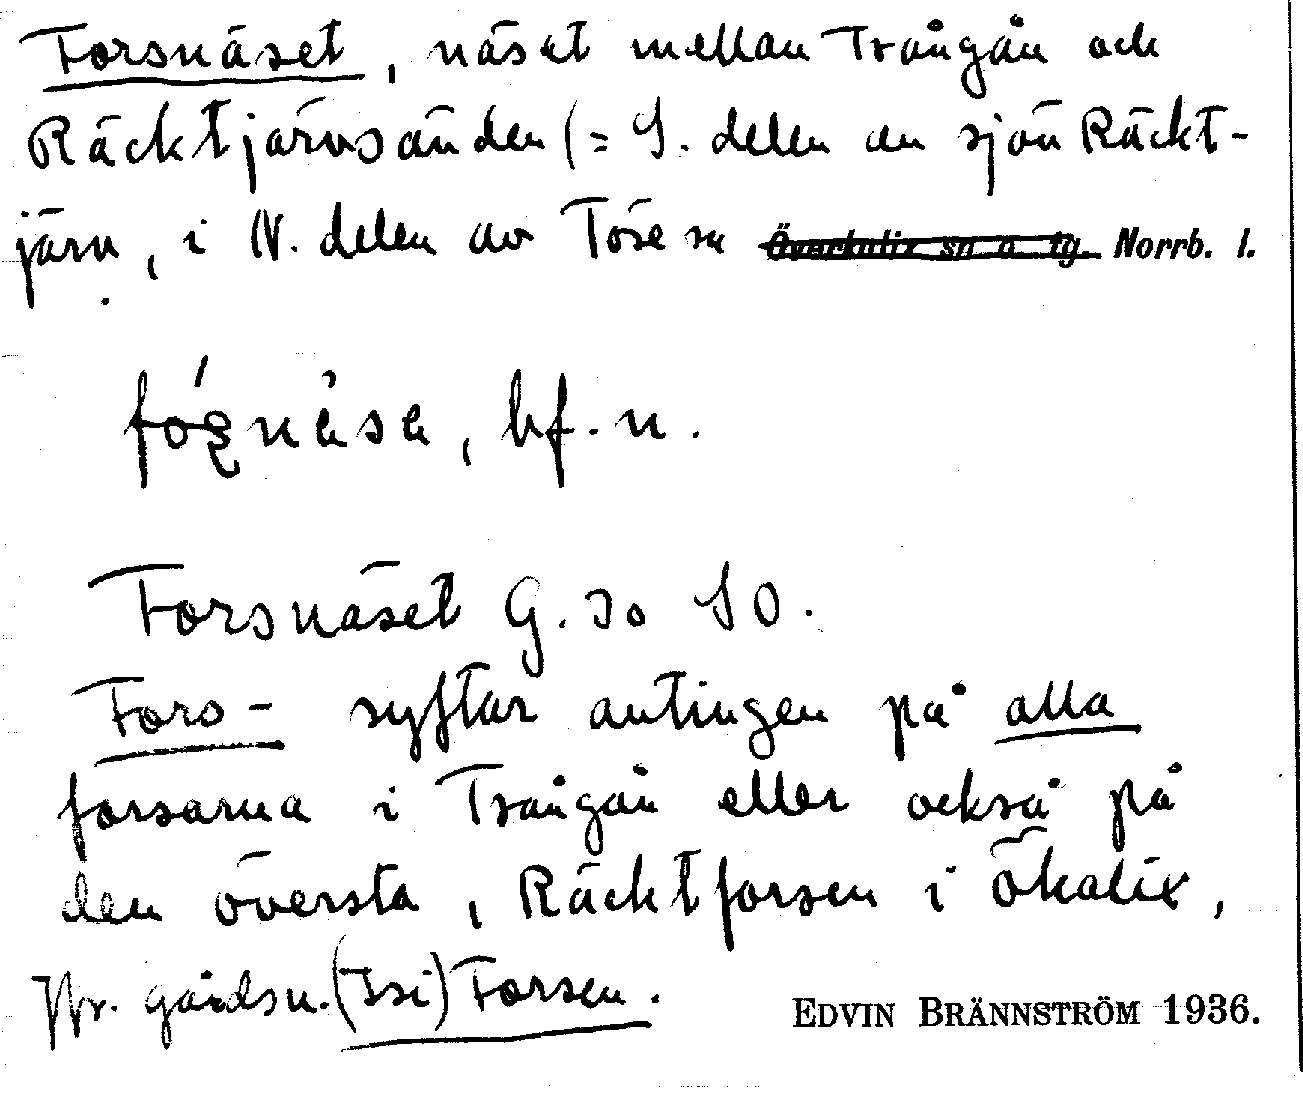 Forsnäset, näset mellan Trångån och
Räcktjärvsänden (= S. delen av sjön Räckt-
järv, i N. delen av Töre sn Överkalix sn o. tg. Norrb. l.
bf. n.
Forsnäset G. so SO.
Fors- syftar antingen på alla
forsarna i Trångån eller också på
den översta, Räcktforsen i Ökalix,
Jfr. gårdsn. Forsen.
EDVIN BRÄNNSTRÖM 1936.